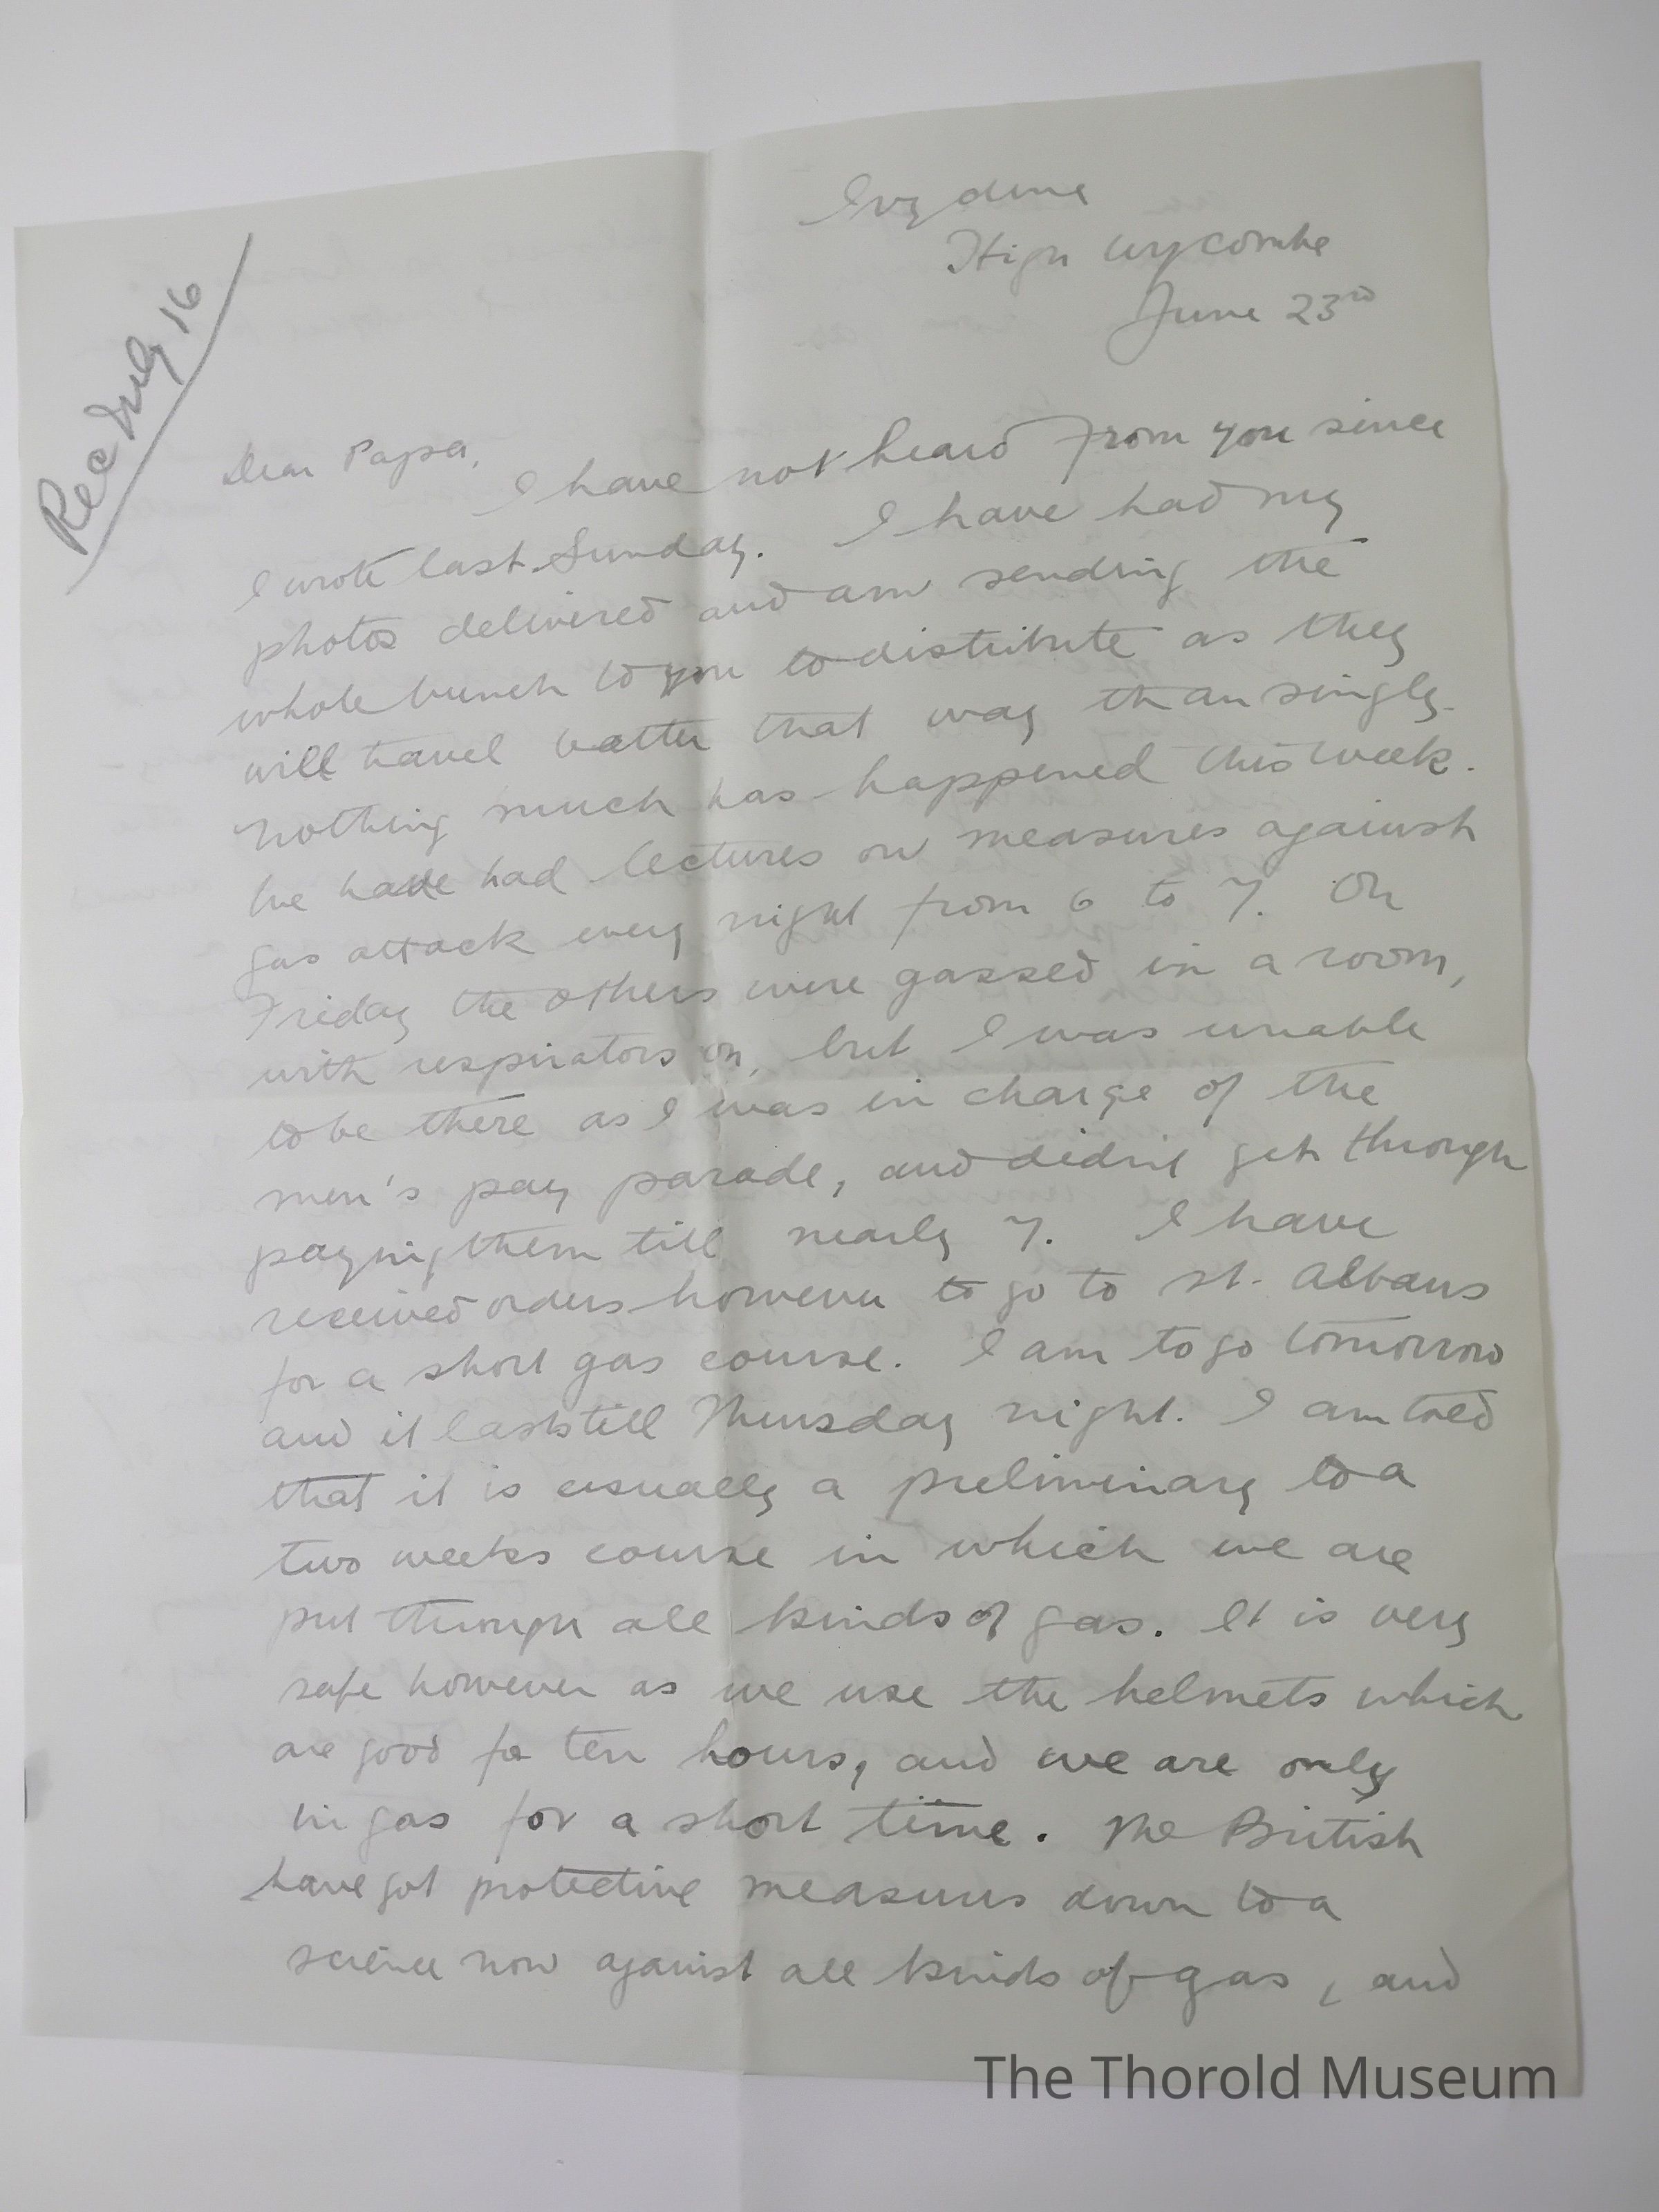 Rec July 16
Ivydene
High Wycombe
June 23rd
Dear Papa,
I have not heard from you since
I wrote last Sunday. I have had my
photos delivered and am sending the
whole bunch to you to distribute as they
will travel better that way than singly.
Nothing much has happened this week.
We have had lectures on measures against
gas attack every night from 6 to 7. On
Friday the others were gassed in a room,
with respirators on, but I was unable
to be there as I was in charge of the
men's pay parade, and didn't get through
paying them till nearly 7. I have
received orders however to go to St. Albans
for a short gas course. I am to go tomorrow
and it lasts till Thursday night. I am told
that it is usually a preliminary to a
two weeks course in which we are
put through all kinds of gas. It is very
safe however as we use the helmets which
are good for ten hours, and we are only
in gas for a short time. The British
have got protective measures down to a
science now against all kinds of gas, and
The Thorold Museum